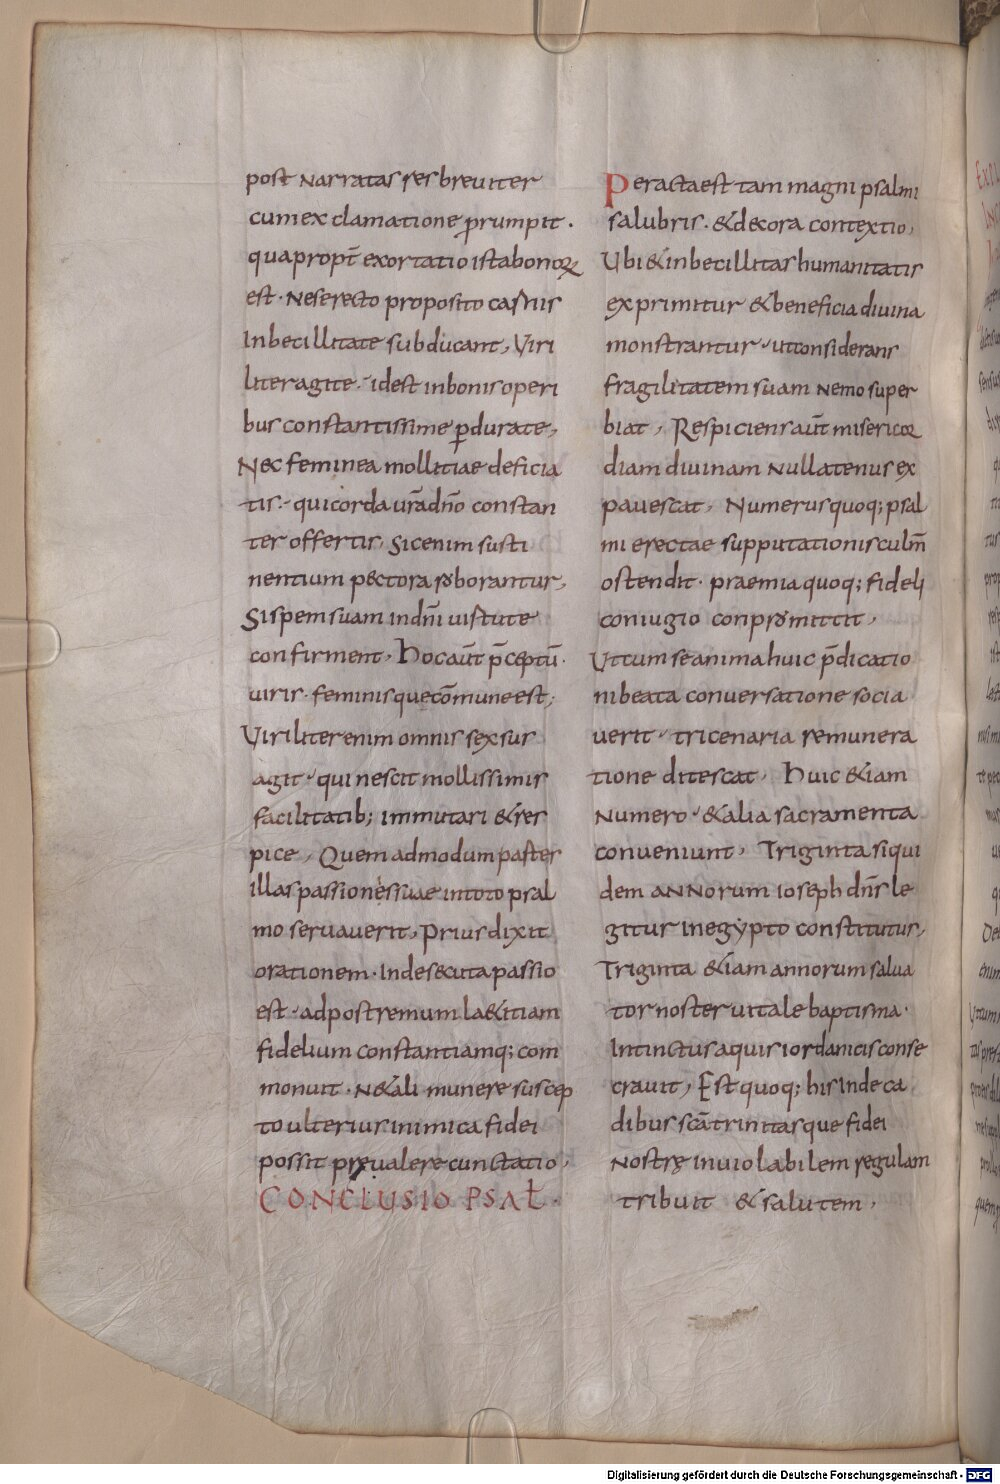 post narratas res breuiter
cum ex clamatione ꝓrumpit ·
quapropt̄ exortatio ista bonoꝝ
est · ne se recto proposito carnis
Inbecillitate subducant, Viri
liter agite · idest in bonis operi
bus constantissime ꝑdurate,
Nec feminea mollitiae deficia
tis · qui corda ur̄a dn̄o constan
ter offertis, Sic enim susti
nentium pectora roborantur,
Si spem suam in dn̄i uirtute
confirment, hoc aūt p̄ceptū ·
uiris · feminisque cōmune est;
Viriliter enim omnis sexsus
agit · qui nescit mollissimis
facilitatib; immutari & res
pice, Quem ad modum pater
illas passiones suae in toto psal
mo seruauerit, Prius dixit
orationem · Inde secuta passio
est · ad postremum lae&itiam
fidelium constantiamq; com
monuit · Ne &ali munere suscep
to ulterius inimica fidei
possit prȩualere cunctatio,
CONCLUSIO PSAL̄ ·
Peracta est tam magni psalmi
salubris · & decora contextio,
Vbi & inbecillitas humanitatis
exprimitur & beneficia diuina
monstrantur · ut considerans
fragilitatem suam nemo super
biat, Respiciens aūt misericor
diam diuinam nullatenus ex
pauescat, Numerus quoq; psal
mi erectae supputationis culm̄
ostendit · praemia quoq; fideli
coniugio conpromittit,
Vt cum se anima huic p̄dicatio
ni beata conuersatione socia
uerit · tricenaria remunera
tione ditescat, Huic &iam
Numero · & alia sacramenta
conueniunt, Triginta siqui
dem annorum ioseph dn̄s le
gitur in egypto constitutus,
Triginta &iam annorum salua
tor noster uitale baptisma ·
Intinctus aquis iordanicis conse
crauit, Est quoq; his in de ca
dibus scā trinitas que fidei
Nostrȩ inuiolabilem regulam
tribuit & salutem,
Digitalisierung gefördert durch die Deutsche Forschungsgemeinschaft - DFG